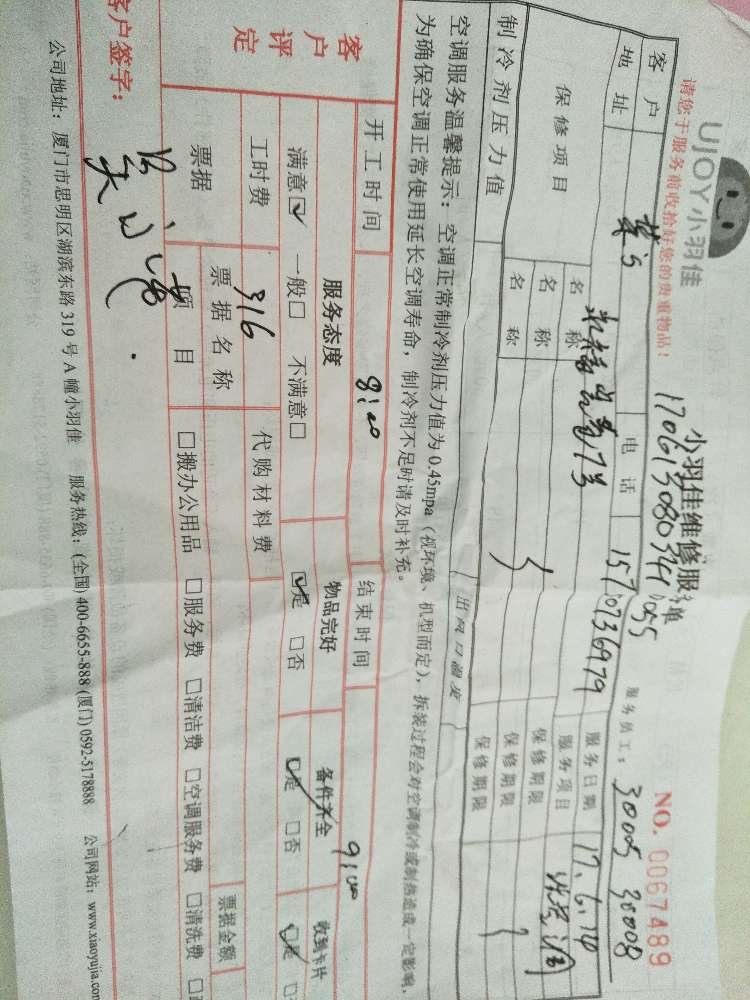 UJOY小羽佳
小羽佳维修服
单
请您于服务前收拾好您的贵重物品！
NO. 0067489
服务员工： 30005 30008
客户
电话
15710736979
服务日期
17.6.14
地址
服务项目
保修项目
名称
保修期限
名称
保修期限
名称
保修期限
制冷剂压力值
出风口温度
空调服务温馨提示：空调正常制冷剂压力值为0.45mpa（视环境、机型而定），拆装过程会对空调制冷或制热造成一定影响，
为确保空调正常使用延长空调寿命，制冷剂不足时请及时补充。
开工时间
8:00
结束时间
9:00
客户评定
服务态度
物品完好
备件齐全
收到卡片
满意☑ 一般□ 不满意□
☑是 □否
☑是 □否
☑是
工时费
316
代购材料费
票据
票据名称
票据金额
项目
□搬办公用品 □服务费 □清洁费 □空调服务费 □清洗费
客户签字：
公司地址：厦门市思明区湖滨东路319号A幢小羽佳 服务热线：(全国) 400-6655-888 (厦门) 0592-5178888 公司网站：www.xiaoyujia.com